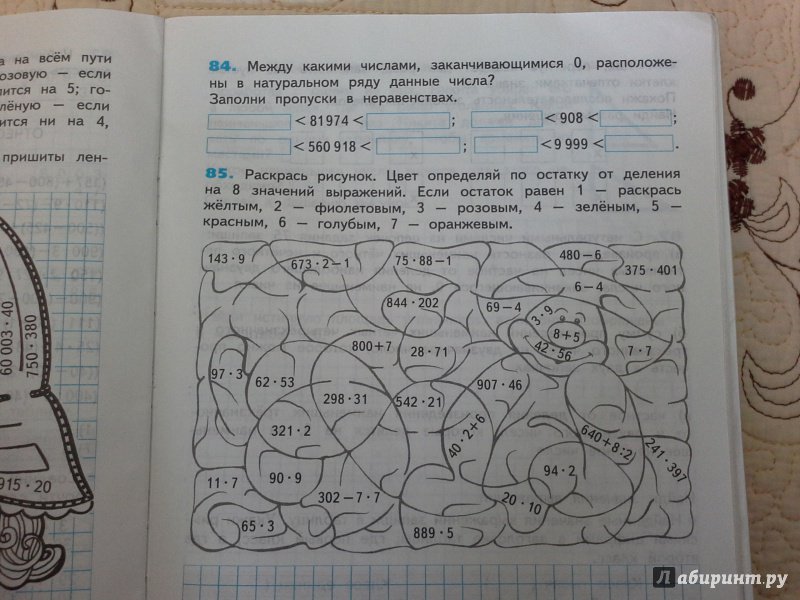 а на всём пути
озовую — если
лится на 5; го-
лёную — если
ится ни на 4,
пришиты лен-
60 003 · 40
750 · 380
915 · 20
84. Между какими числами, заканчивающимися 0, расположе-
ны в натуральном ряду данные числа?
Заполни пропуски в неравенствах.
< 81974 < ; < 908 < ;
< 560 918 < ; < 9 999 < .
85. Раскрась рисунок. Цвет определяй по остатку от деления
на 8 значений выражений. Если остаток равен 1 — раскрась
жёлтым, 2 — фиолетовым, 3 — розовым, 4 — зелёным, 5 —
красным, 6 — голубым, 7 — оранжевым.
143 · 9
673 · 2 − 1
75 · 88 − 1
480 − 6
375 · 401
6 − 4
844 · 202
69 − 4
3 · 9
8 + 5
42 · 56
7 · 7
800 + 7
28 · 71
97 · 3
62 · 53
298 · 31
542 · 21
907 · 46
321 · 2
40 · 2 + 6
640 + 8 : 2
241 · 397
11 · 7
90 · 9
302 − 7 · 7
94 · 2
20 · 10
65 · 3
889 · 5
Лабиринт.ру